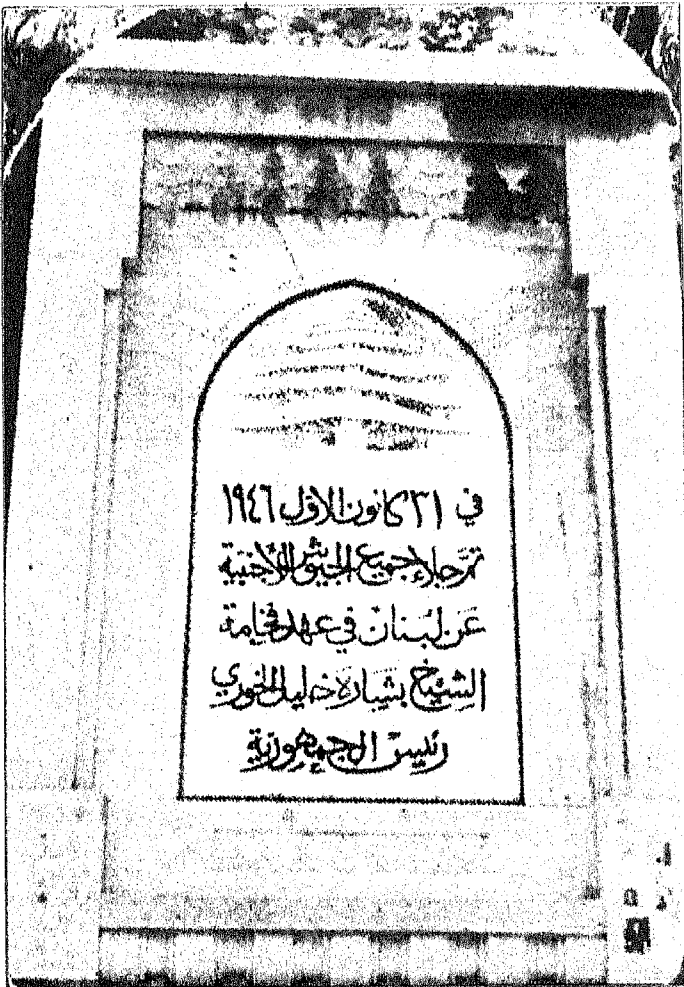 في ٣١ كانون الاول ١٩٤٦
تمّ جلاء جميع الجيوش الأجنبية
عَن لبنان في عهد فخامة
الشيخ بشاره خليل الخوري
رئيس الجمهورية